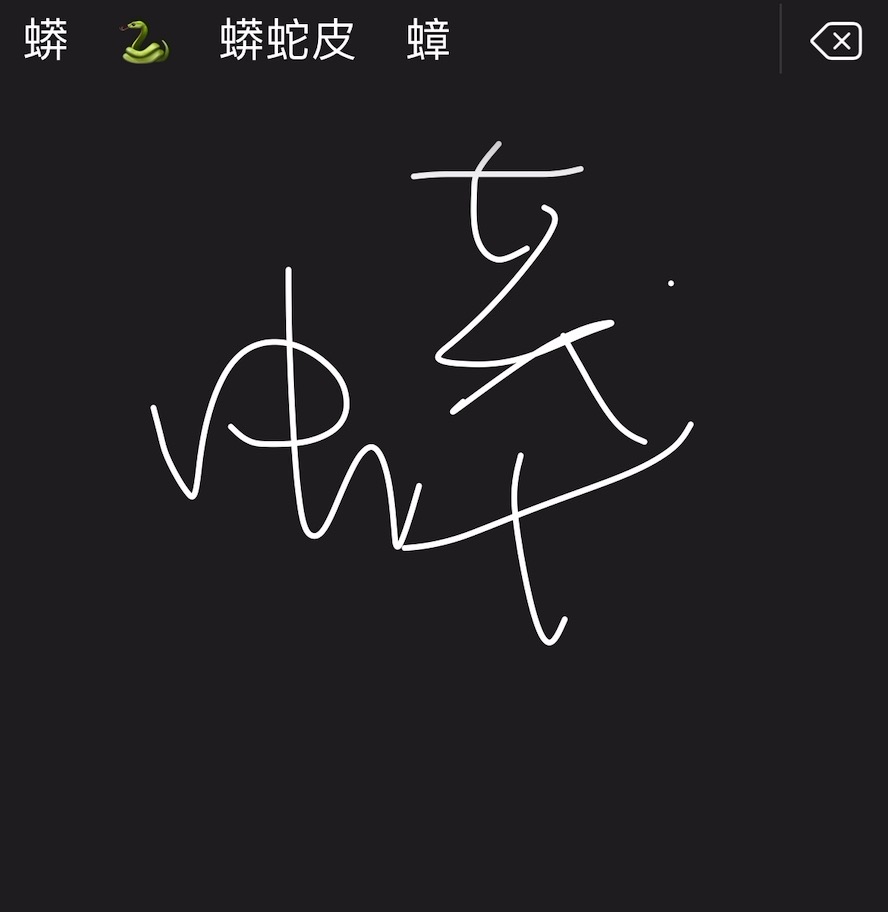 蟒 🐍 蟒蛇皮 蟑
蟀